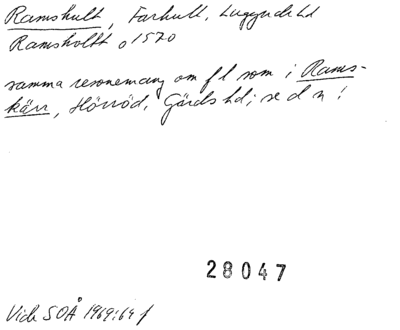 Ramshult, Farhult, Luggude hd
Ramsholtt o 1570
samma resonemang om fl som i Rams-
kärr, Hörröd, Gärds hd; se d n!
28047
Vide SOÅ 1969:64 f